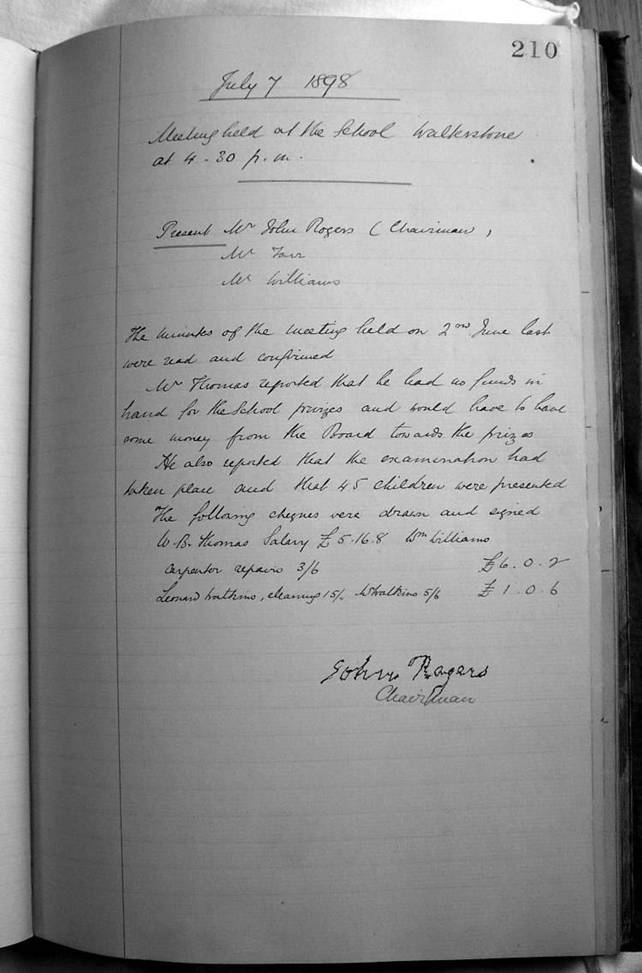 210
July 7 1898
Meeting held at the School Walterstone
at 4-30 p.m.
Present Mr John Rogers (Chairman)
Mr Farr
Mr Williams
The minutes of the meeting held on 2nd June last
were read and confirmed
Mr Thomas reported that he had no funds in
hand for the School prizes and would have to have
some money from the Board towards the prizes
He also reported that the examination had
taken place and that 45 children were presented
The following cheques were drawn and signed
W. B. Thomas Salary £5.16.8 Wm Williams
carpentor repairs 3/6 £6.0.2
Leonard Watkins, cleaning 15/. W Watkins 5/6 £1.0.6
John Rogers
Chairman